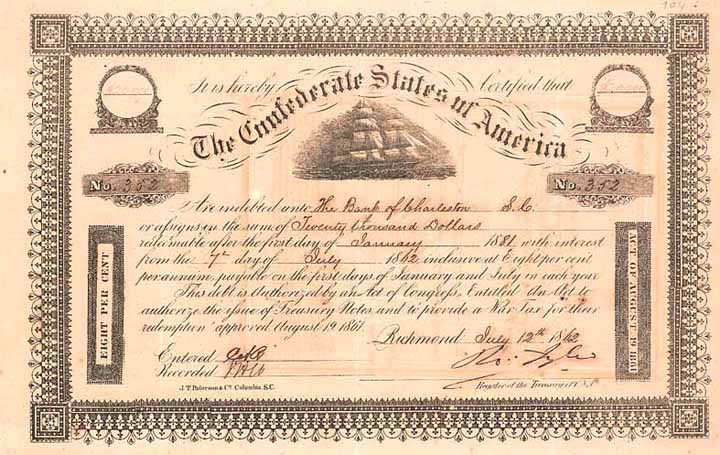 It is hereby Certified that
The Confederate States of America
No. 352 No. 352
Are indebted unto The Bank of Charleston S.C.
or assigns in the sum of Twenty thousand Dollars
redeemable after the first day of January 1881 with interest
from the 7th day of July 1862 inclusive at Eight per cent
per annum, payable on the first days of January and July in each year
This debt is Authorized by an Act of Congress, Entitled "An Act to
authorize the issue of Treasury Notes and to provide a War Tax for their
redemption" approved August 19 1861.
EIGHT PER CENT
ACT OF AUGUST 19 1861
Richmond July 12th 1862
Entered
Recorded
Ro: Tyler
Register of the Treasury C.S.A
J.T. Paterson & Co. Columbia, S.C.